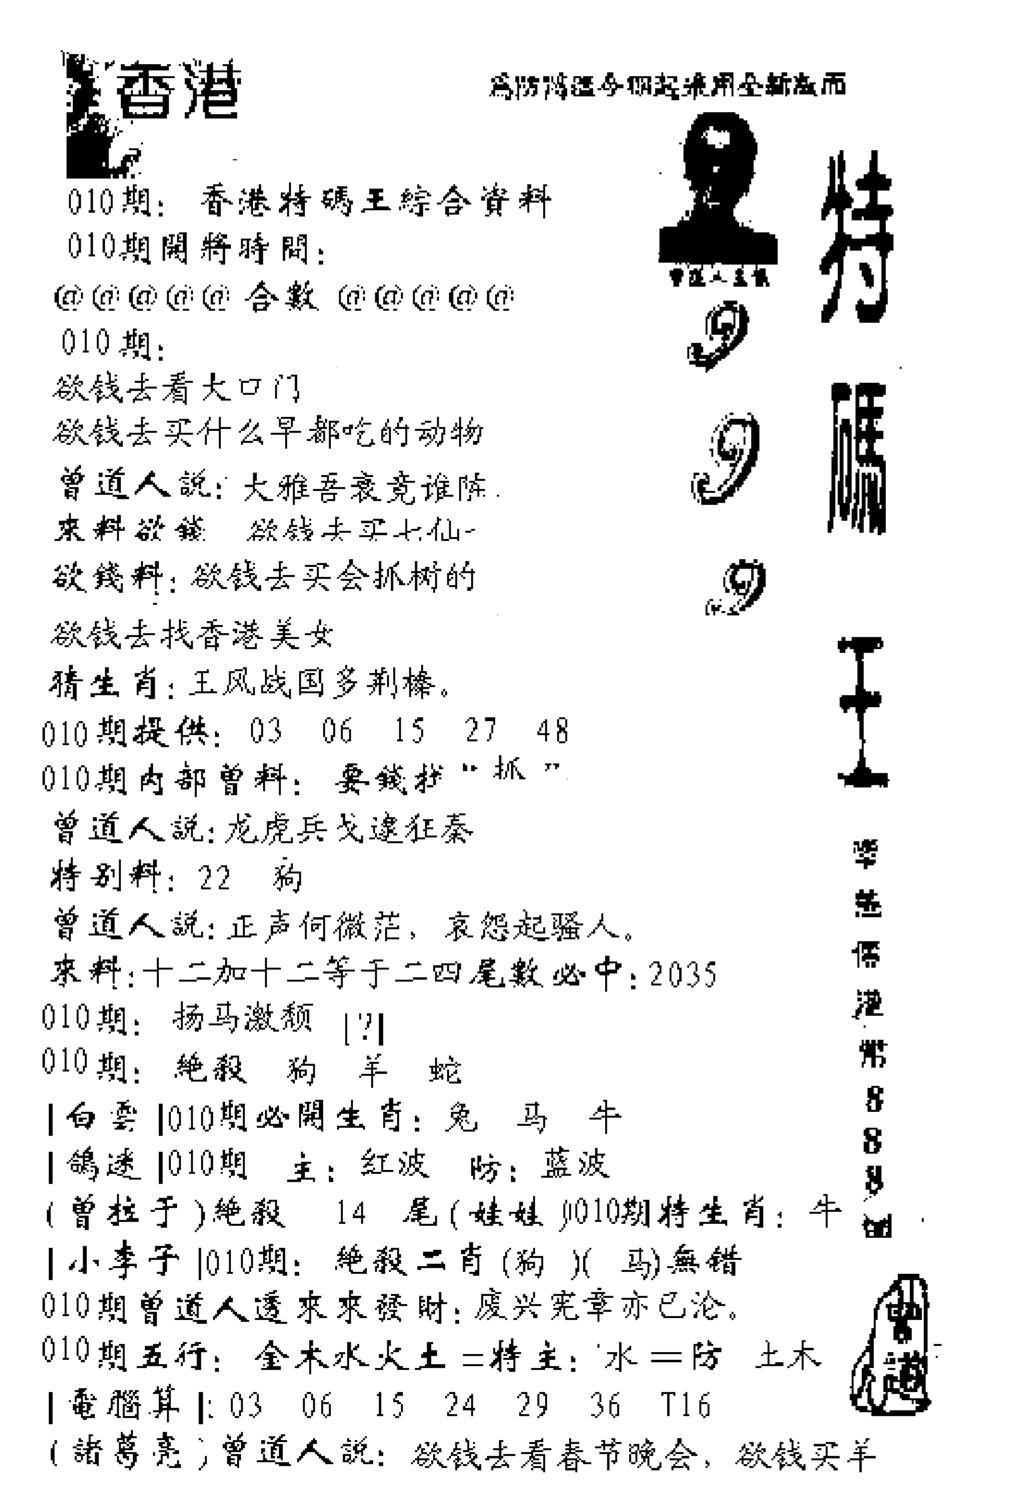 香港
為防滿溫今期起採用全新版面
010期：香港特碼王綜合資料
010期開將時間：
@@@@@合數@@@@@
010期：
欲钱去看大口门
欲钱去买什么早都吃的动物
曾道人説：大雅吾衰竞谁陈.
來料欲錢 欲钱去买七仙
欲錢料：欲钱去买会抓树的
欲钱去找香港美女
猜生肖：王风战国多荆榛。
010期提供：03 06 15 27 48
010期内部曾料：要錢找“抓”
曾道人説：龙虎兵戈逮狂秦
特别料：22 狗
曾道人説：正声何微茫，哀怨起骚人。
來料：十二加十二等于二四尾數必中：2035
010期：扬马激颓 |?|
010期：絶殺 狗 羊 蛇
|白雲|010期必開生肖：兔 马 牛
|鴿迷|010期 主：红波 防：蓝波
(曾拉于)絶殺 14 尾(娃娃)010期特生肖：牛
|小李子|010期：絶殺二肖(狗 )( 马)無錯
010期曾道人透來來發財：废兴宪章亦已沦。
010期五行：金木水火土=特主：水=防 土木
|電腦算|：03 06 15 24 29 36 T16
(諸葛亮)曾道人説：欲钱去看春节晚会，欲钱买羊
特碼王
9
9
9
港幣888
曾道